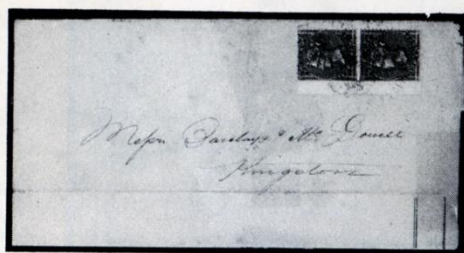 Messrs Barclays & Mc Dowell
Kingston